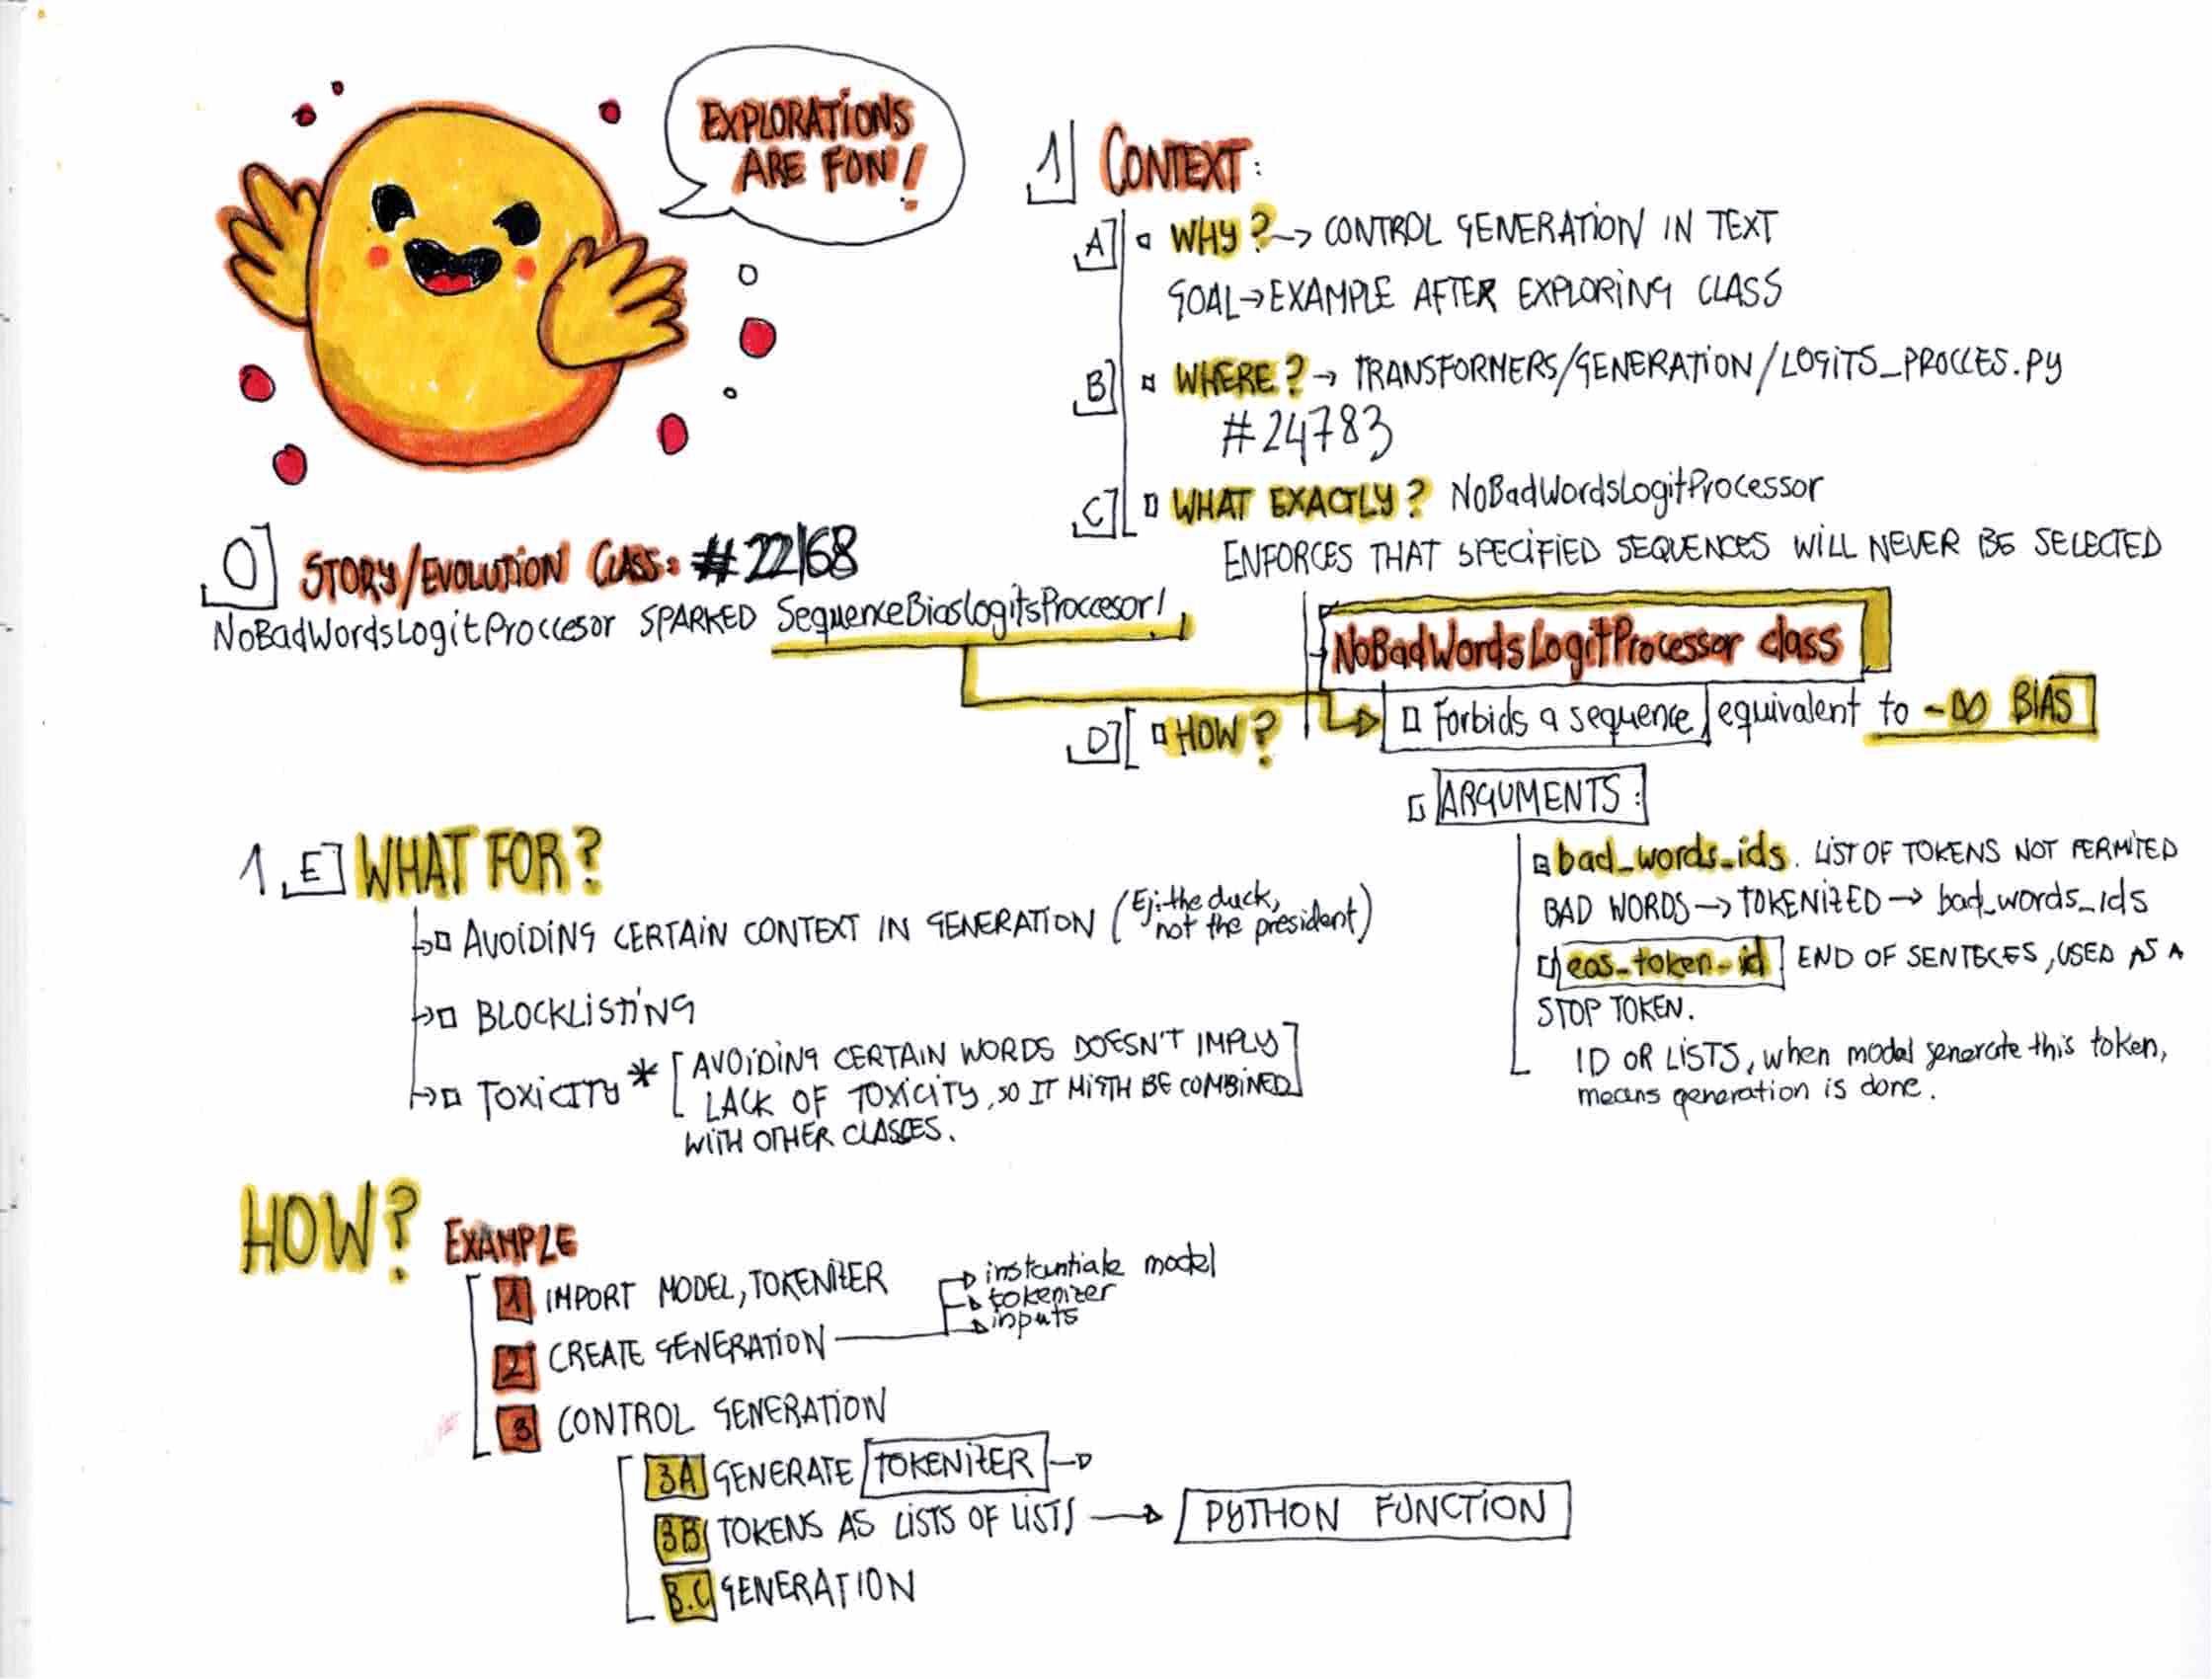 EXPLORATIONS
ARE FUN!
1 CONTEXT:
A WHY? → CONTROL GENERATION IN TEXT
GOAL → EXAMPLE AFTER EXPLORING CLASS
B WHERE? → TRANSFORMERS/GENERATION/LOGITS_PROCCES.PY
#24783
C WHAT EXACTLY? NoBadWordsLogitProcessor
ENFORCES THAT SPECIFIED SEQUENCES WILL NEVER BE SELECTED
0 STORY/EVOLUTION CLASS: #22168
NoBadWordsLogitProccesor SPARKED SequenceBiasLogitsProccesor!
NoBadWordsLogitProcessor class
D HOW?
Forbids a sequence equivalent to -∞ BIAS
ARGUMENTS:
bad_words_ids. LIST OF TOKENS NOT PERMITED
BAD WORDS → TOKENIZED → bad_words_ids
eos_token_id END OF SENTECES, USED AS A
STOP TOKEN.
ID OR LISTS, when model generate this token,
means generation is done.
1.E WHAT FOR?
AVOIDING CERTAIN CONTEXT IN GENERATION (Ej: the duck,
not the president)
BLOCKLISTING
TOXICITY * [AVOIDING CERTAIN WORDS DOESN'T IMPLY
LACK OF TOXICITY, SO IT MIGTH BE COMBINED]
WITH OTHER CLASSES.
HOW? EXAMPLE
1 IMPORT MODEL, TOKENIZER
2 CREATE GENERATION
instantiate model
tokenizer
inputs
3 CONTROL GENERATION
3A GENERATE TOKENIZER →
3B TOKENS AS LISTS OF LISTS → PYTHON FUNCTION
3.C GENERATION